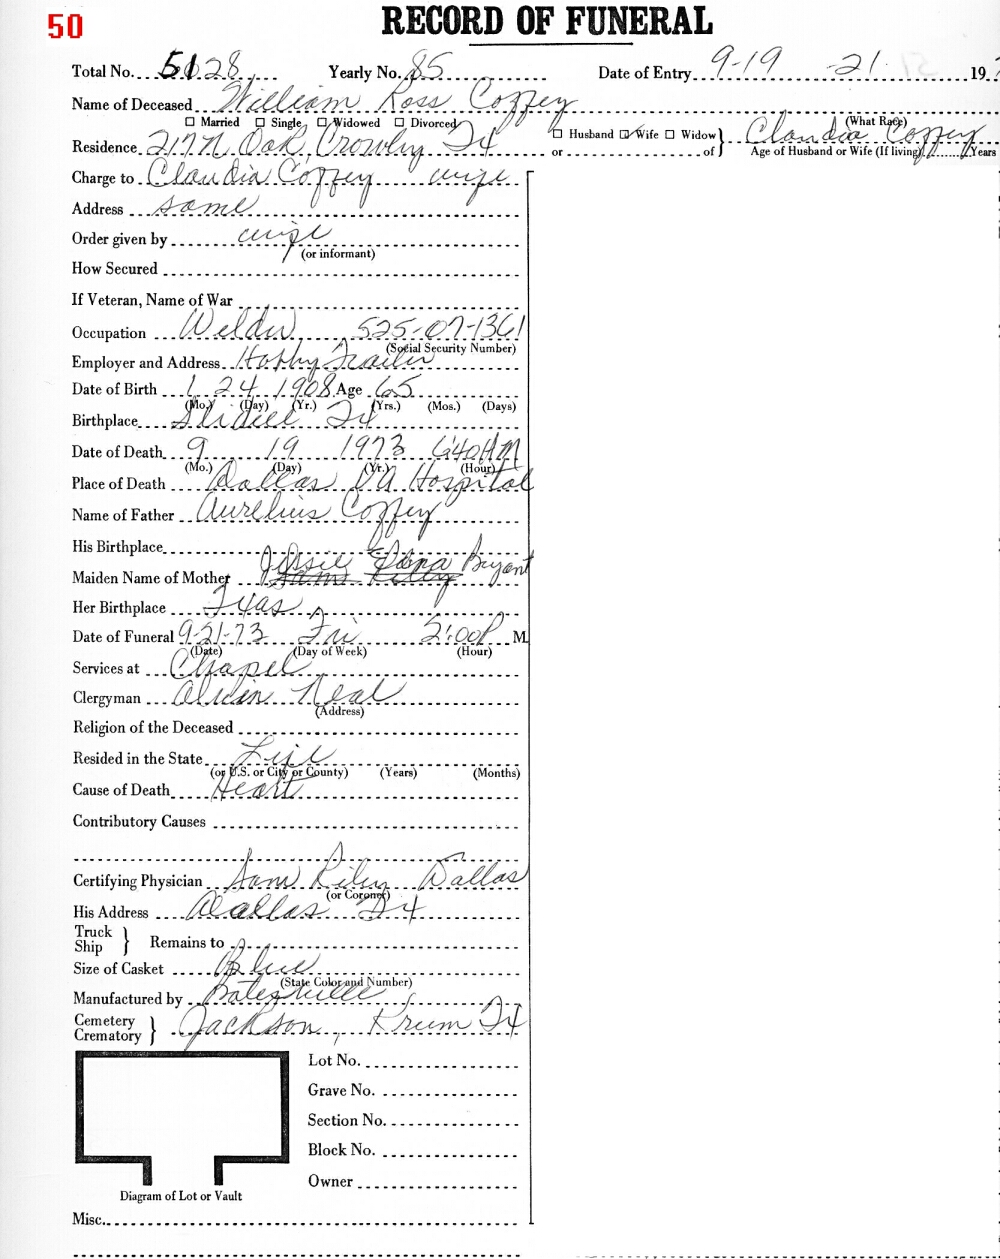 50
RECORD OF FUNERAL
Total No. 5128 Yearly No. 85 Date of Entry 9-19 -21 19
Name of Deceased William Ross Coffey (What Race)
☐ Married ☐ Single ☐ Widowed ☐ Divorced
Residence 217 N Oak Crowley Tx ☐ Husband ☑ Wife ☐ Widow or of } Claudia Coffey Age of Husband or Wife (If living) Years
Charge to Claudia Coffey wife
Address same
Order given by wife
(or informant)
How Secured
If Veteran, Name of War
Occupation Welder 525-07-1361
(Social Security Number)
Employer and Address Hobby Trailer
Date of Birth 1 24 1908 Age 65
(Mo.) (Day) (Yr.) (Yrs.) (Mos.) (Days)
Birthplace Slidell Tx
Date of Death 9 19 1973 6:40 AM
(Mo.) (Day) (Yr.) (Hour)
Place of Death Dallas VA Hospital
Name of Father Aurelius Coffey
His Birthplace
Maiden Name of Mother Jessie Edna Bryant
Her Birthplace Texas
Date of Funeral 9-21-73 Fri 2:00 P M.
(Date) (Day of Week) (Hour)
Services at Chapel
Clergyman Alvin Neal
(Address)
Religion of the Deceased
Resided in the State Life
(or U.S. or City or County) (Years) (Months)
Cause of Death Heart
Contributory Causes
Certifying Physician Sam Riley Dallas
(or Coroner)
His Address Dallas Tx
Truck Ship } Remains to
Size of Casket Blue
(State Color and Number)
Manufactured by Batesville
Cemetery Crematory } Jackson, Krum Tx
Lot No.
Grave No.
Section No.
Block No.
Owner
Diagram of Lot or Vault
Misc.